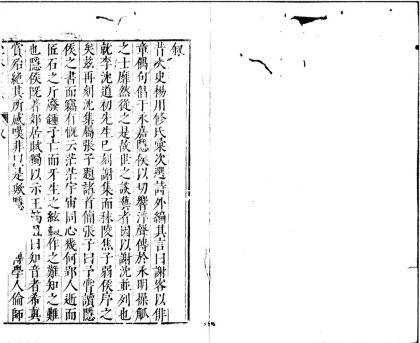 叙
昔太史楊用修氏彙次選詩外編其言曰謝客以俳
章偶句倡于永嘉隱侯以切響浮聲傳於永明操觚
之士靡然從之是故世之談藝者因以謝沈並列也
就李沈道初先生已刻謝集而秣陵焦子弱侯序之
矣茲再刻沈集屬張子題諸首簡張子曰予嘗讀隱
侯之書而竊有慨云茫茫宇宙同心幾何郢人逝而
匠石之斤廢鍾子亡而牙生之絃輟作之難知之難
也隱侯既著郊居賦獨以示王筠曰知音者希真
賞殆絕其所感嘆非只是歟學人倫師